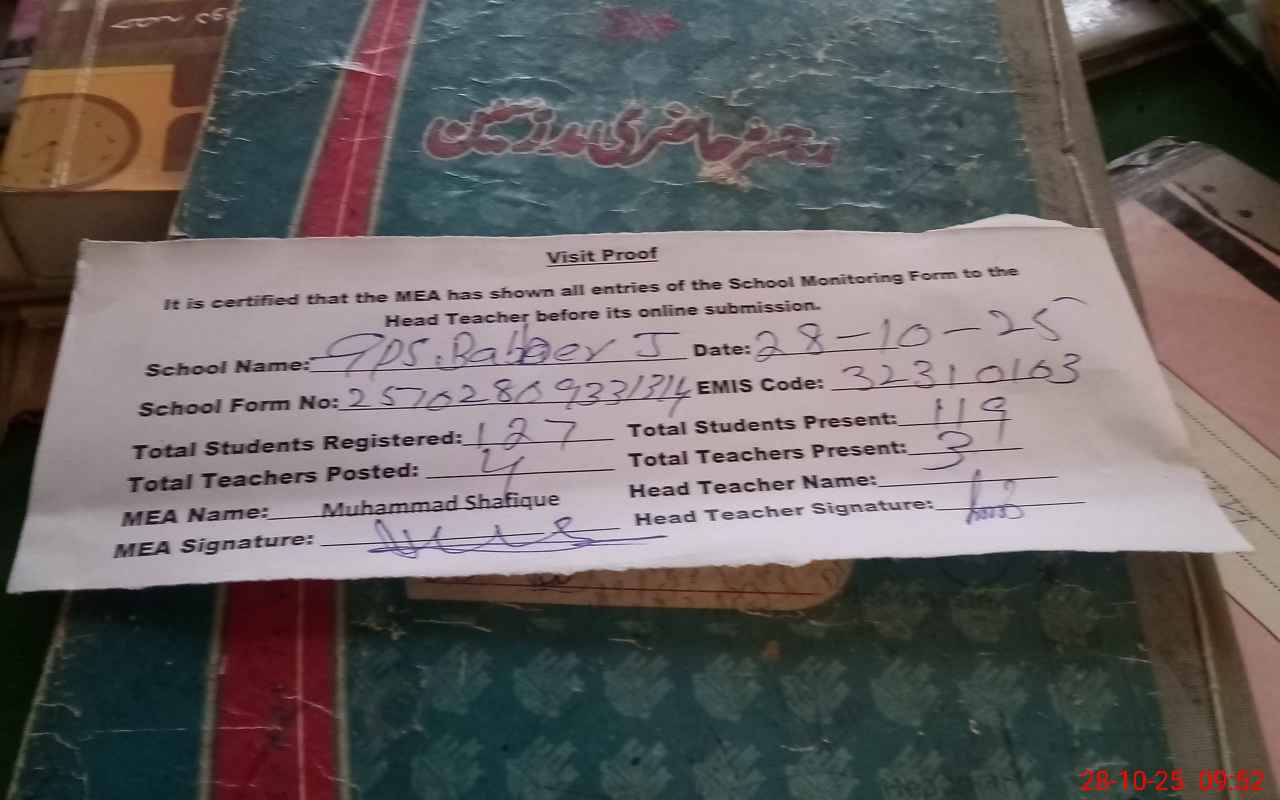 رجسٹر حاضری مدرسین
Visit Proof
It is certified that the MEA has shown all entries of the School Monitoring Form to the
Head Teacher before its online submission.
School Name: GPS. Date: 28-10-25
School Form No: EMIS Code: 32310163
Total Students Registered: 127 Total Students Present: 119
Total Teachers Posted: 4 Total Teachers Present: 3
MEA Name: Muhammad Shafique Head Teacher Name:
MEA Signature: Head Teacher Signature:
28-10-25 09:52